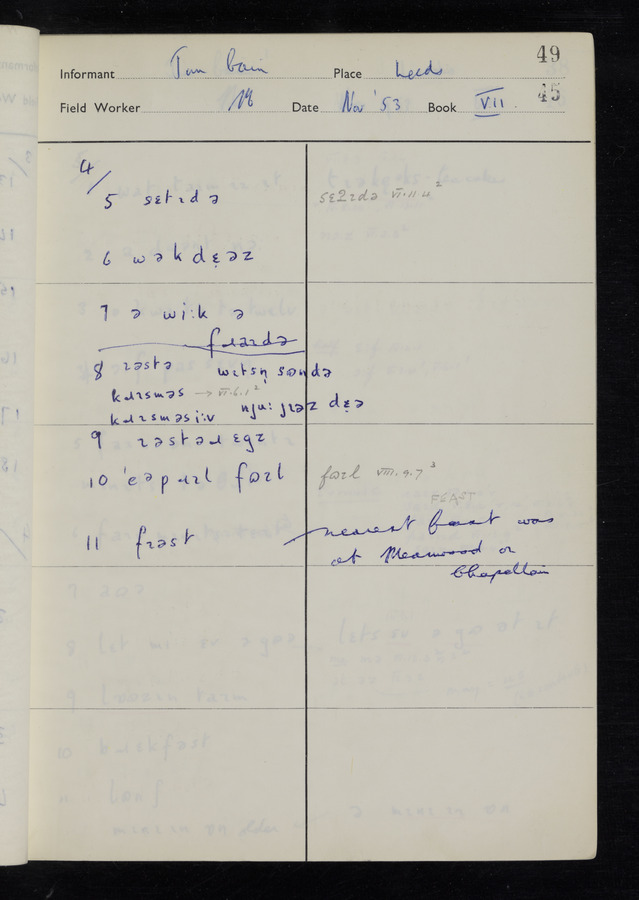 49
Informant Tom Cain Place Leeds
45
Field Worker Date Nov '53 Book VII
4/
5 sɛtɪdə
sɛʔɪdə VI.11.4²
6 wəkdɛ̣əz
7 ə wiːk ə
fɹaɪdə
8 ɪəstə wɪtsn̩ sʊndə
kɹɪsməs → VI.6.1²
kɹɪsməs iːv njuː jɪəz dɛ̣ə
9 ɪəstəɹ ɛgz
10 'eəpɹɪl fʊɪl
fʊɪl VIII.9.7³
FEAST
11 fɪəst
nearest feast was
at Meanwood or
Chapeltown